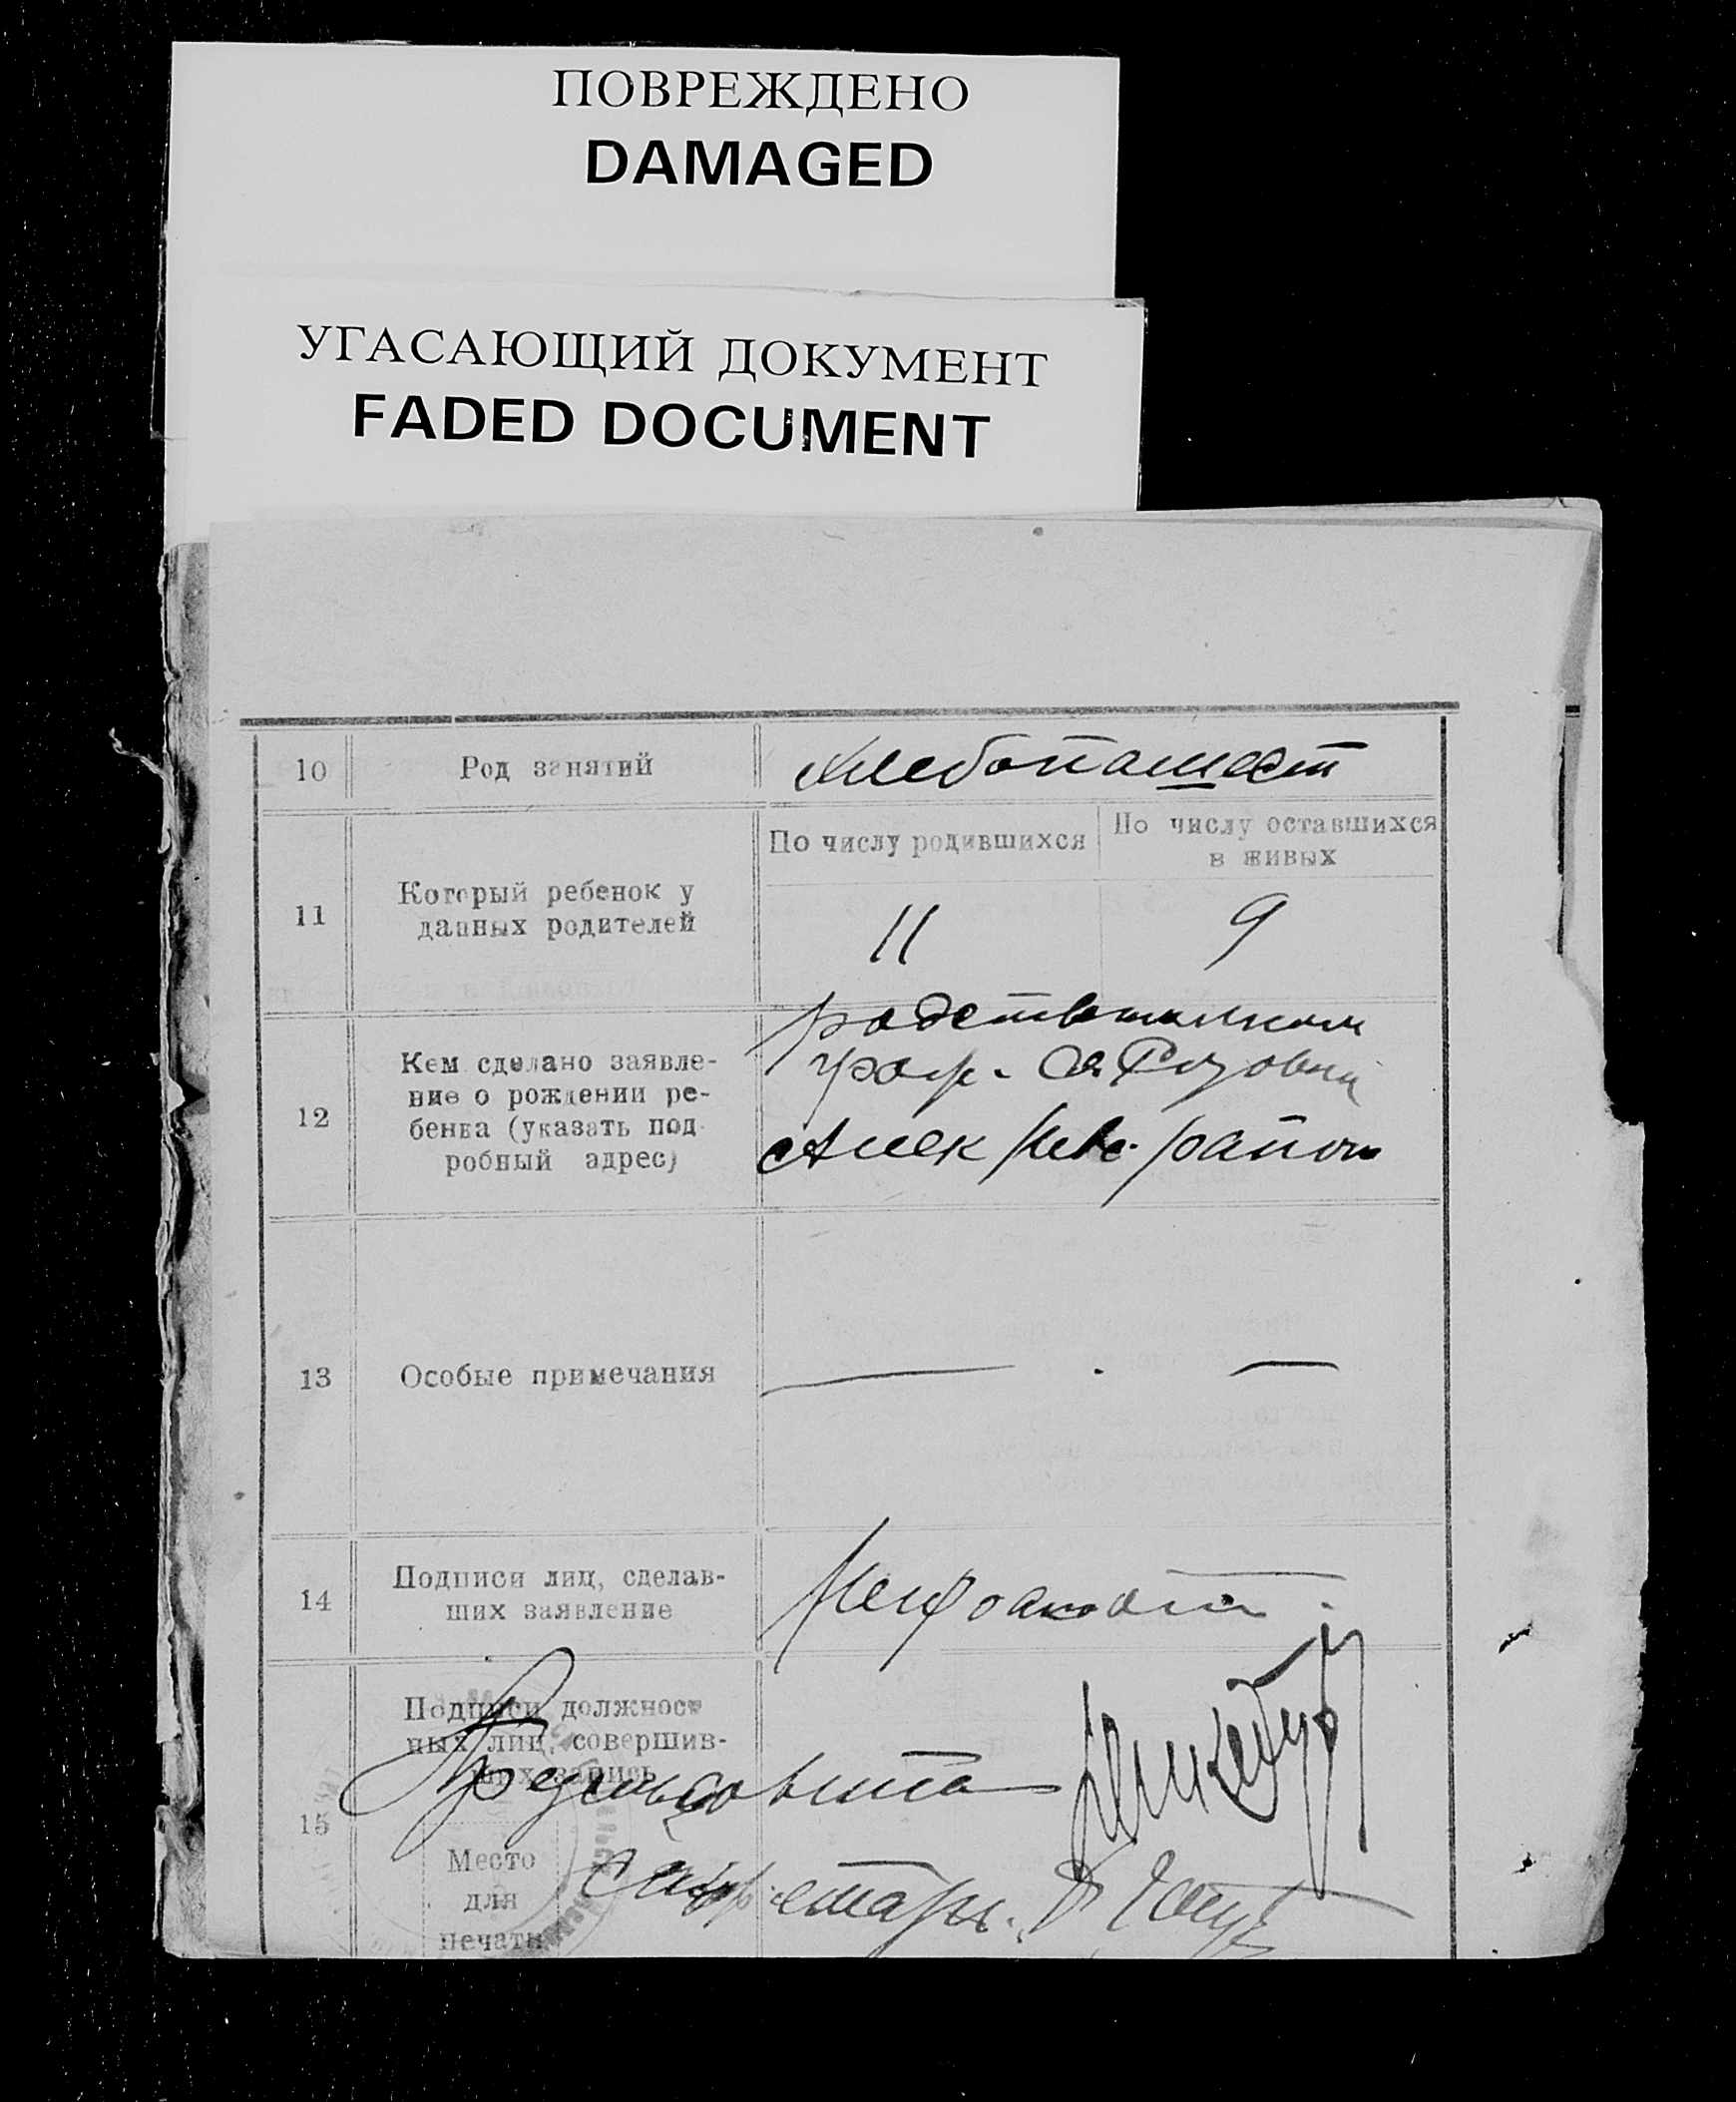 ПОВРЕЖДЕНО
DAMAGED
УГАСАЮЩИЙ ДОКУМЕНТ
FADED DOCUMENT
10 Род занятий хлебопашест
11 Который ребенок у
данных родителей
По числу родившихся
11
По числу оставшихся
в живых
9
12 Кем сделано заявле-
ние о рождении ре-
бенка (указать под-
робный адрес)
родственником
район
13 Особые примечания — . —
14 Подписи лиц, сделав-
ших заявление
15 Подписи должност
ных лиц, совершив-
ших запись
Место
для
печати
Секретарь